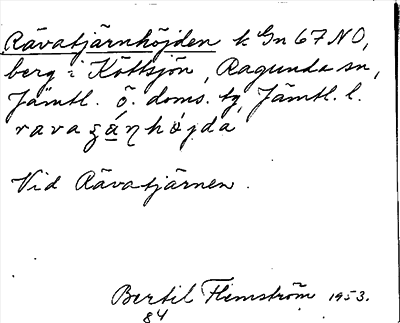 Rävatjärnhöjden k Gn 67 NO,
berg i Köttsjön, Ragunda sn,
Jämtl. ö. doms. tg, Jämtl. l.
Vid Rävatjärnen.
Bertil Flemström 1953.
84